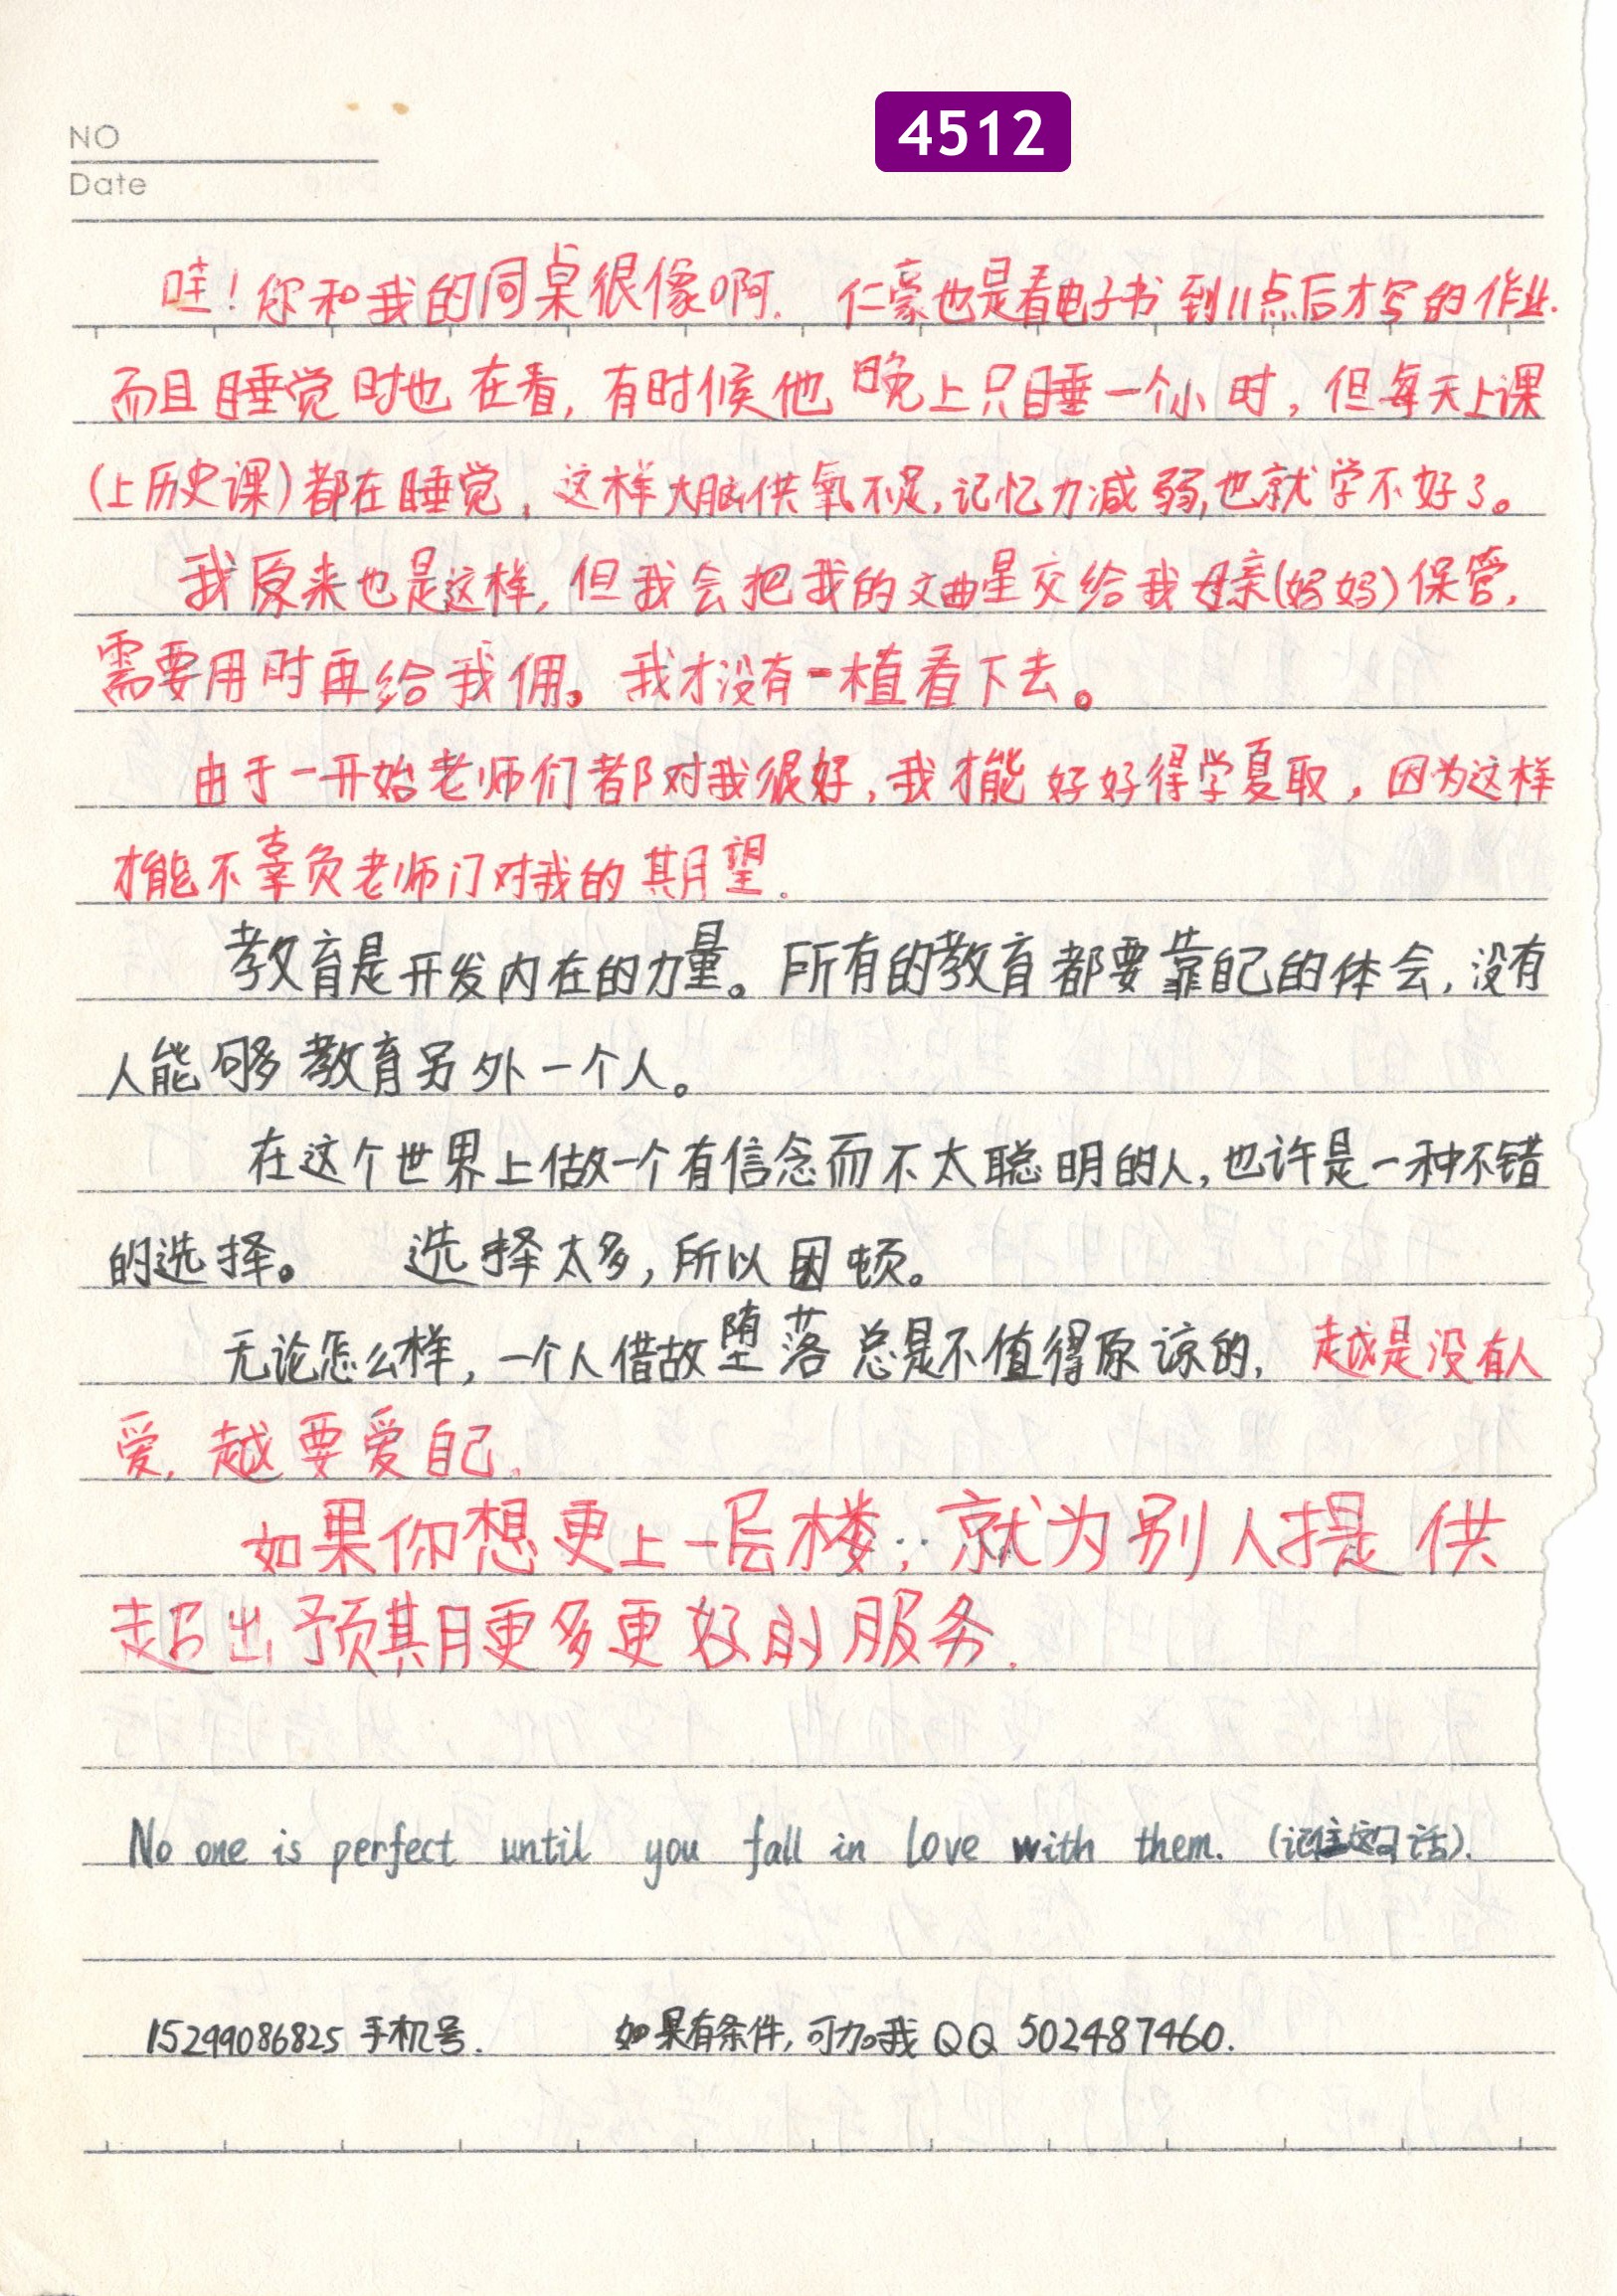 4512
NO
Date
哇！你和我的同桌很像啊. 仁豪也是看电子书到11点后才写的作业.
而且睡觉时也在看, 有时候他晚上只睡一个小时, 但每天上课
(上历史课)都在睡觉, 这样大脑供氧不足, 记忆力减弱, 也就学不好了。
我原来也是这样, 但我会把我的文曲星交给我母亲(妈妈)保管,
需要用时再给我佣。我才没有一植看下去。
由于一开始老师们都对我很好, 我才能好好得学夏取, 因为这样
才能不辜负老师门对我的期望.
教育是开发内在的力量。所有的教育都要靠自己的体会, 没有
人能够教育另外一个人。
在这个世界上做一个有信念而不太聪明的人, 也许是一种不错
的选择。 选择太多, 所以困顿。
无论怎么样, 一个人借故堕落总是不值得原谅的, 越是没有人
爱, 越要爱自己.
如果你想更上一层楼, 就为别人提供
超出预期更多更好的服务.
No one is perfect until you fall in love with them. (记住这句话).
15299086825 手机号. 如果有条件, 可加我 QQ 502487460.